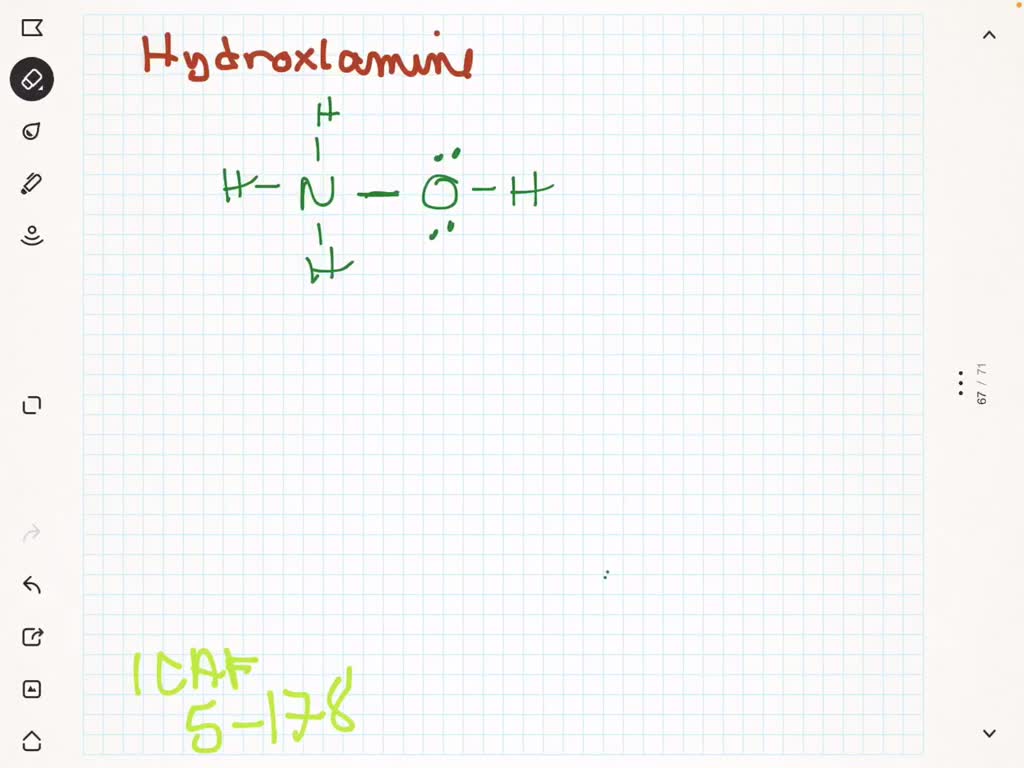 Hydroxlamine
H
H - N - O - H
H
1CAF
5-178
67 / 71